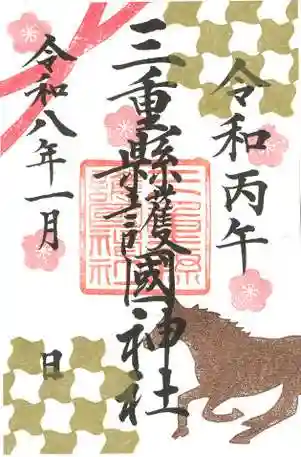 令和丙午
三重縣護國神社
令和八年一月
日